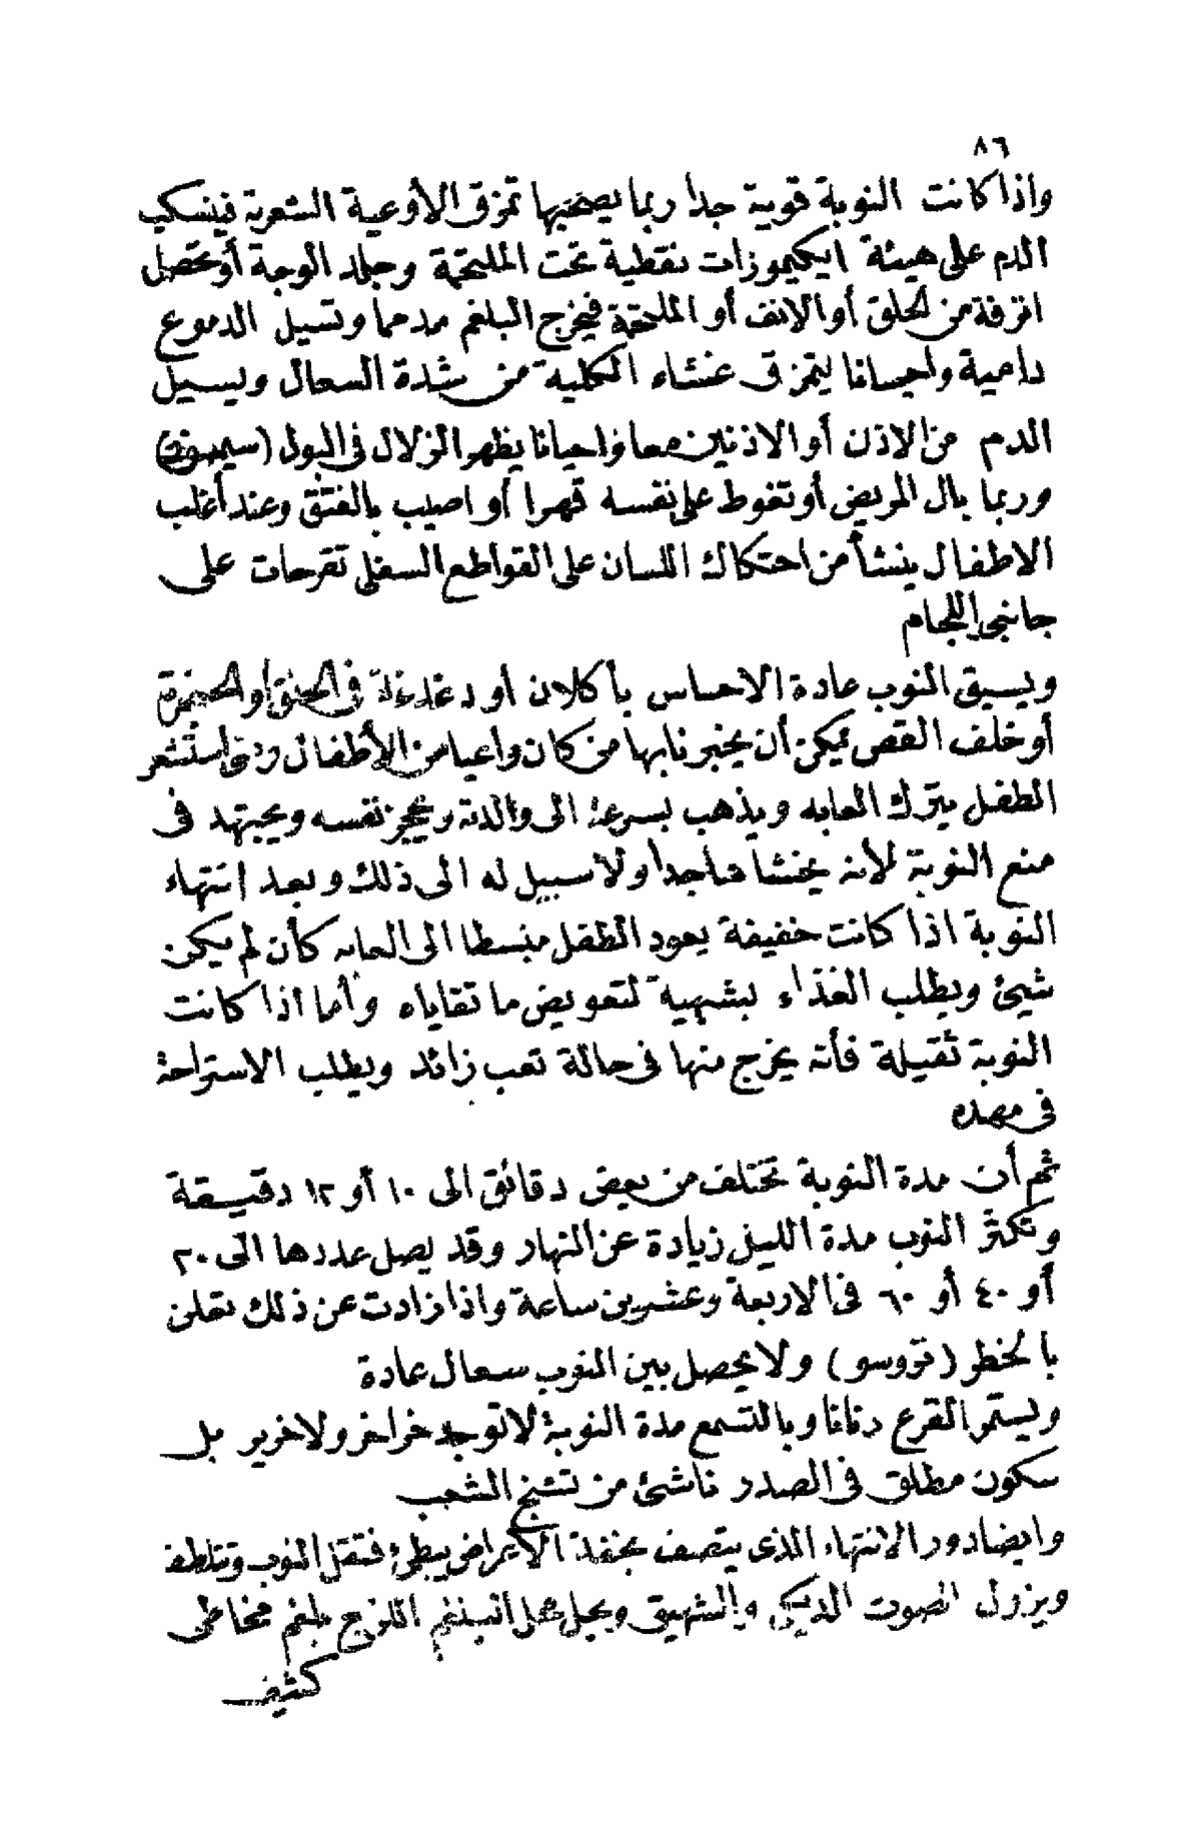 ٨٦
واذا كانت النوبة قوية جدا ربما يصحبها تمزق الأوعية الشعرية فينسكب
الدم على هيئة ايكيموزات نقطية تحت الملتحمة وجلد الوجة أو تحصل
انزفة من الحلق أو الانف أو الملتحمة فيخرج البلغم مدمما وتسيل الدموع
دامية واحيانا يتمزق غشاء الطبلة من شدة السعال ويسيل
الدم من الاذن أو الاذنين معا واحيانا يظهر الزلال فى البول (سيمون)
وربما بال المريض أو تغوط على نفسه قهرا أو اصيب بالفتق وعند أغلب
الاطفال ينشأ من احتكاك اللسان على القواطع السفلى تقرحات على
جانبى اللجام
ويسبق النوب عادة الاحساس بأكلان أو دغدغة فى الحلق أو الحنجرة
أو خلف القص يمكن أن يخبرنا بها من كان واعيا من الأطفال ومتى استشعر
الطفل يترك العابه ويذهب بسرعة الى والدته ويحجز نفسه ويجتهد فى
منع النوبة لأنه يخشاها جدا ولا سبيل له الى ذلك وبعد انتهاء
النوبة اذا كانت خفيفة يعود الطفل منبسطا الى العابه كأن لم يكن
شيئ ويطلب الغذاء بشهية لتعويض ما تقاياه وأما اذا كانت
النوبة ثقيلة فأنه يخرج منها فى حالة تعب زائد ويطلب الاستراحة
فى مهده
ثم أن مدة النوبة تختلف من بعض دقائق الى ١٠ أو ١٢ دقيقة
وتكثر النوب مدة الليل زيادة عن النهار وقد يصل عددها الى ٢٠
أو ٤٠ أو ٦٠ فى الاربعة وعشرين ساعة واذا زادت عن ذلك تعلن
بالخطر (تروسو) ولا يحصل بين النوب سعال عادة
ويستمر القرع رنانا وبالتسمع مدة النوبة لا توجد خراخر ولا خرير بل
سكون مطلق فى الصدر ناشئ من تشنج الشعب
وايضا دور الانتهاء الذى يتصف بخفة الأعراض ببطئ فتقل النوب وتتلطف
ويزول الصوت الديكى والشهيق ويحل محل البلغم اللزج بلغم مخاطى
كثيف